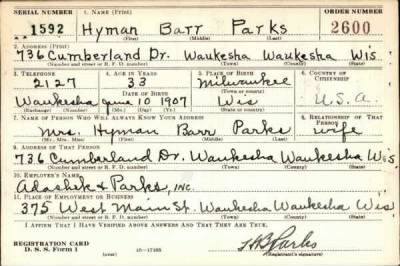 SERIAL NUMBER 1. NAME (Print) ORDER NUMBER
1592 Hyman Barr Parks 2600
(First) (Middle) (Last)
2. ADDRESS (Print)
736 Cumberland Dr. Waukesha Waukesha Wis
(Number and street or R. F. D. number) (Town) (County) (State)
3. TELEPHONE 4. AGE IN YEARS 5. PLACE OF BIRTH 6. COUNTRY OF CITIZENSHIP
2127 33 Milwaukee
DATE OF BIRTH (Town or county)
Waukesha June 10 1907 Wis U.S.A.
(Exchange) (Number) (Mo.) (Day) (Yr.) (State or country)
7. NAME OF PERSON WHO WILL ALWAYS KNOW YOUR ADDRESS 8. RELATIONSHIP OF THAT PERSON
Mrs. Hyman Barr Parks wife
(Mr., Mrs., Miss) (First) (Middle) (Last)
9. ADDRESS OF THAT PERSON
736 Cumberland Dr. Waukesha Waukesha Wis
(Number and street or R. F. D. number) (Town) (County) (State)
10. EMPLOYER'S NAME
& Parks, INC.
11. PLACE OF EMPLOYMENT OR BUSINESS
375 West Main St. Waukesha Waukesha Wis
(Number and street or R. F. D. number) (Town) (County) (State)
I AFFIRM THAT I HAVE VERIFIED ABOVE ANSWERS AND THAT THEY ARE TRUE.
REGISTRATION CARD
D. S. S. Form 1 (over) 16-17105 H B Parks
(Registrant's signature)